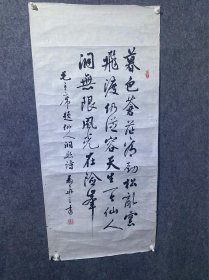 暮色蒼茫看勁松亂雲
飛渡仍從容天生一个仙人
洞無限風光在險峯
毛主席題仙人洞照詩 書